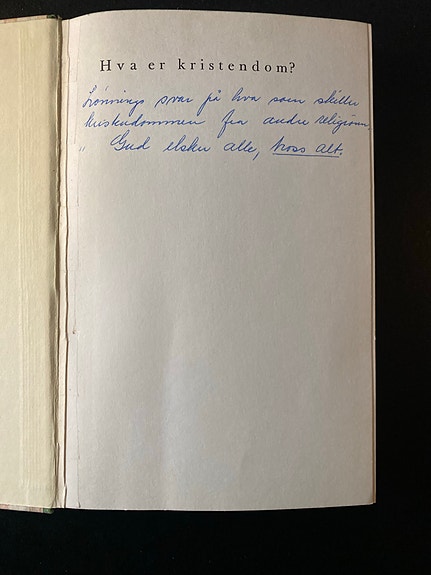 Hva er kristendom?
Lønnings svar på hva som skiller
kristendommen fra andre religioner.
" Gud elsker alle, tross alt.